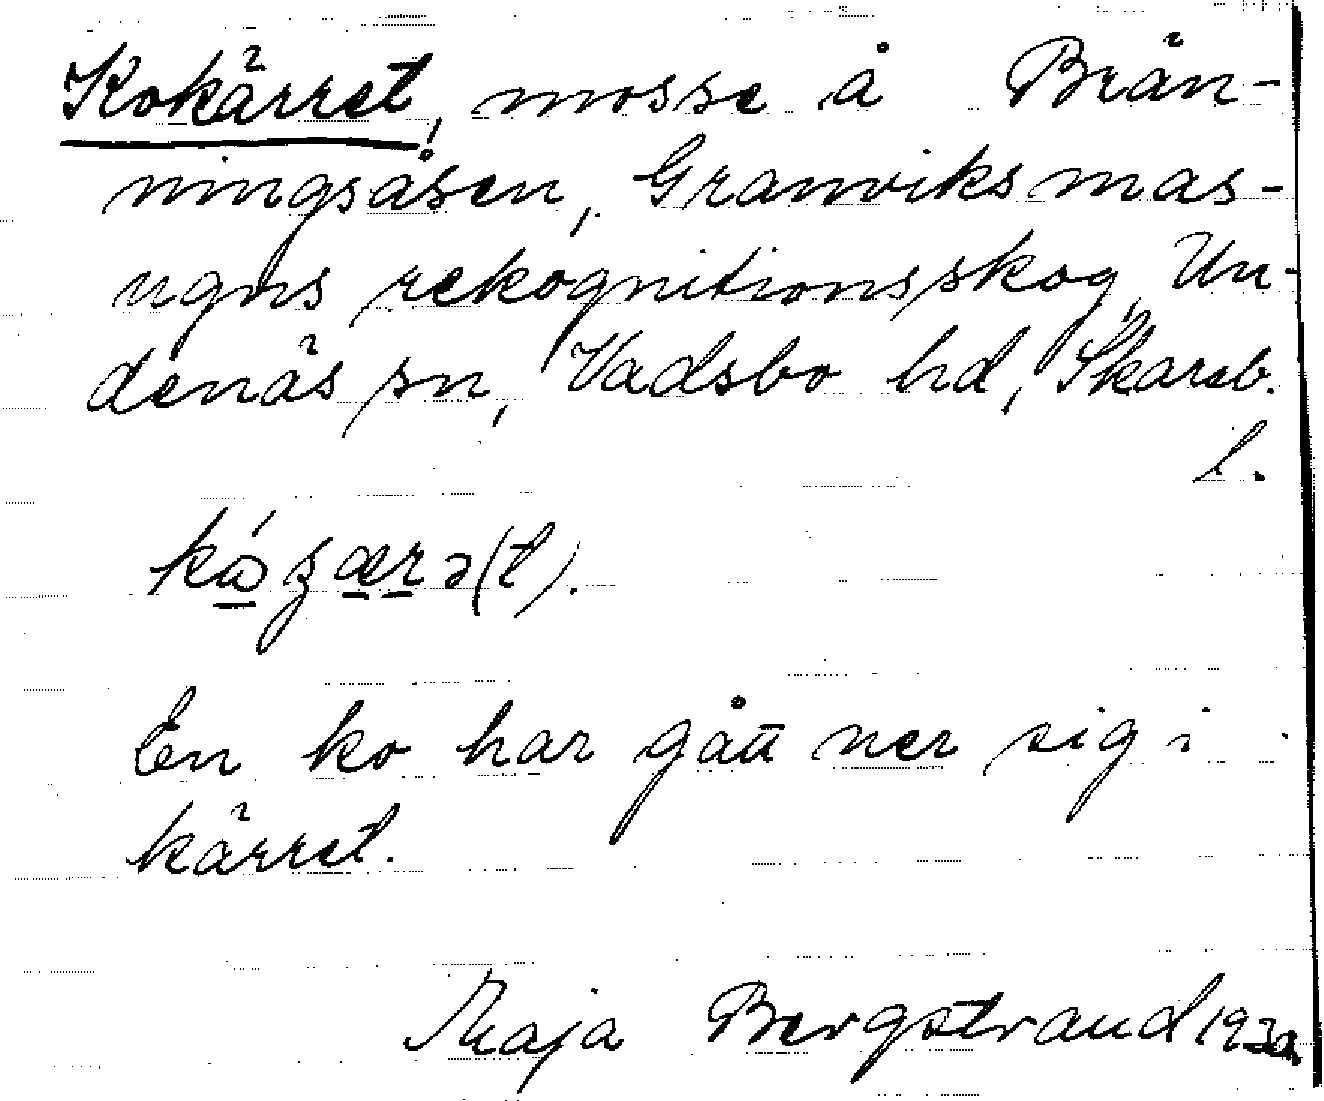 Kokärret, mosse å Brän-
ningsåsen, Granviksmas-
ugns rekognitionsskog, Un-
denäs sn, Vadsbo hd, Skarab.
l.
En ko har gått ner sig i
kärret.
Maja Bergstrand 1930.